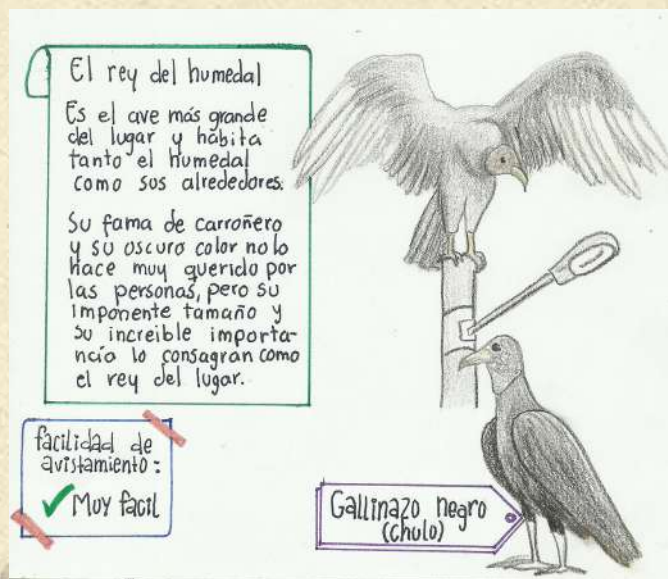 El rey del humedal
Es el ave más grande
del lugar y hábita
tanto el humedal
como sus alrededores.
Su fama de carroñero
y su oscuro color no lo
hace muy querido por
las personas, pero su
imponente tamaño y
su increible importa-
ncia lo consagran como
el rey del lugar.
facilidad de
avistamiento:
Muy facil
Gallinazo negro
(chulo)